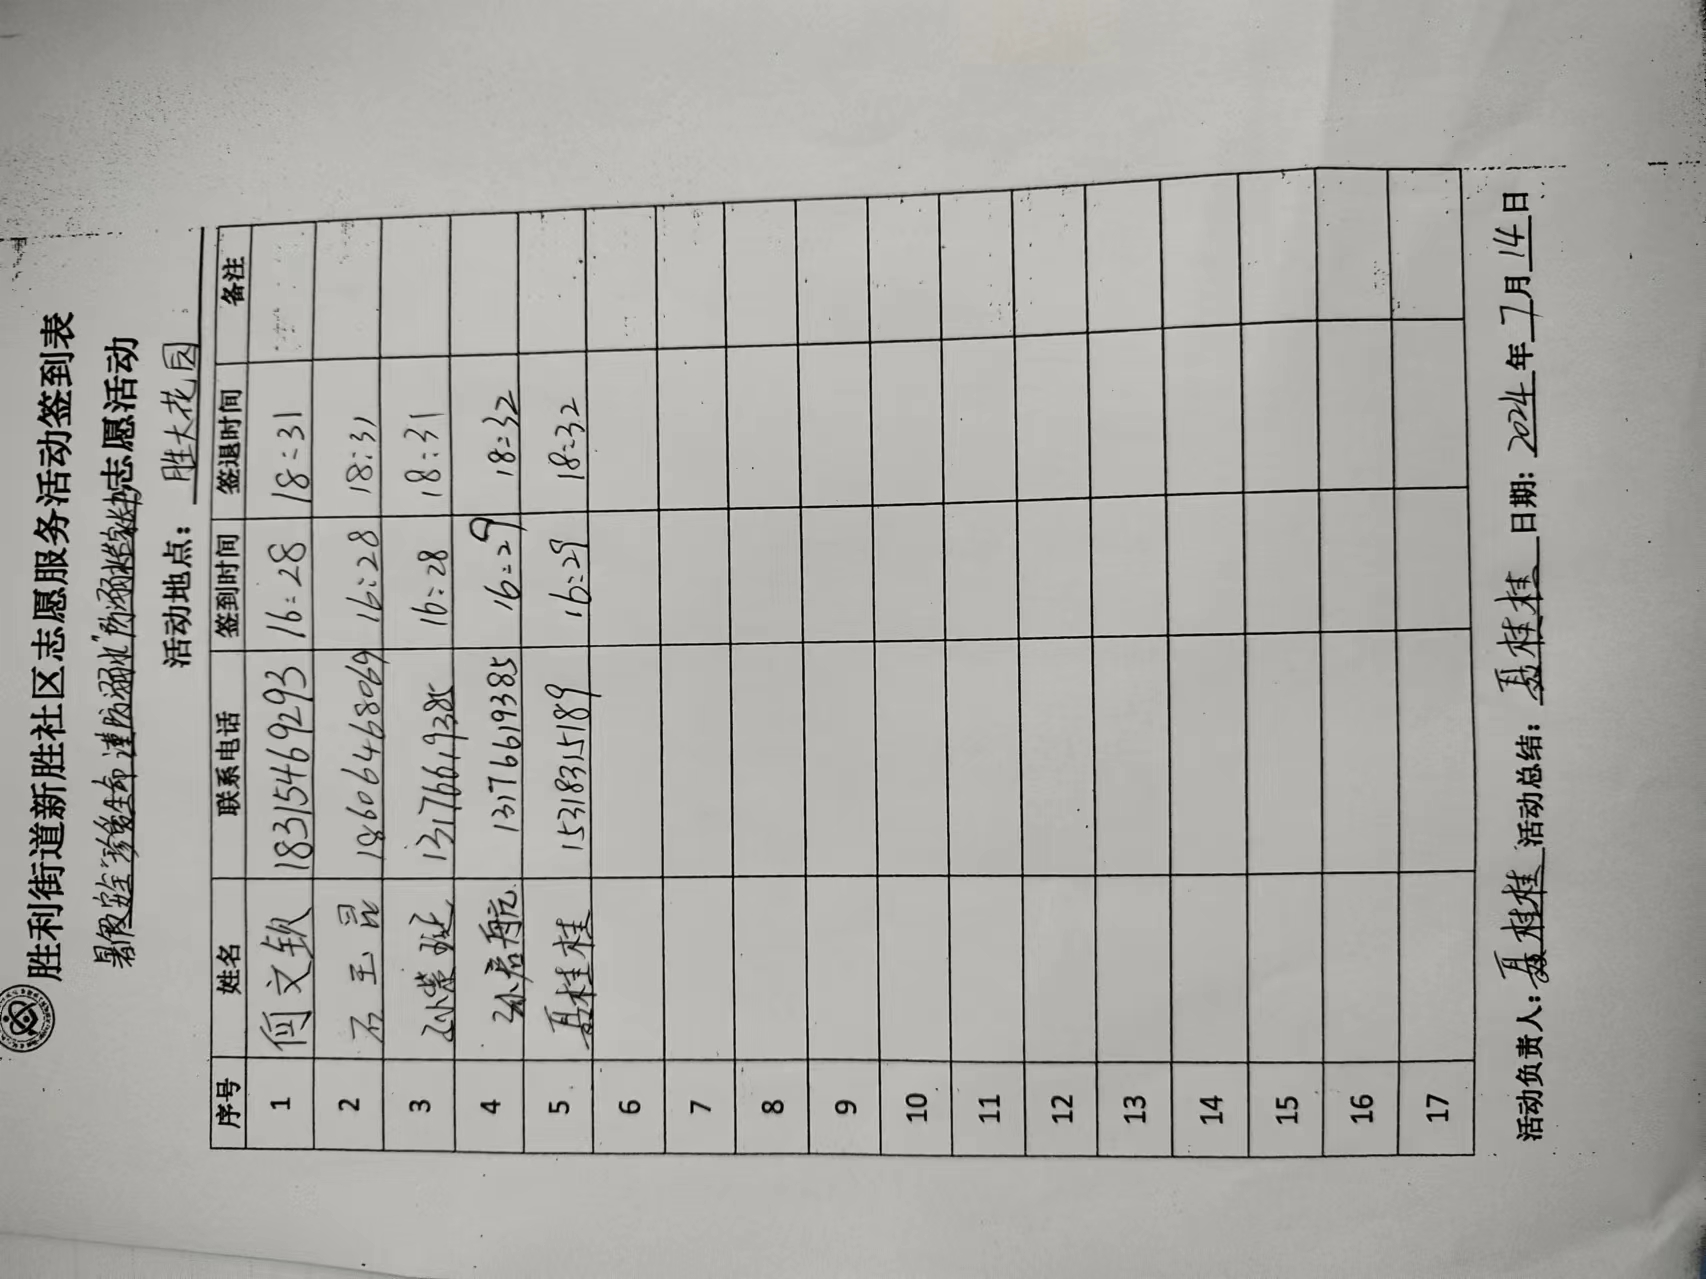 胜利街道新胜社区志愿服务活动签到表
暑假安全"珍爱生命 谨防溺水"防溺水 志愿活动
活动地点： 胜大花园
序号 姓名 联系电话 签到时间 签退时间 备注
1 何文钦 18315469293 16:28 18:31
2 石玉昆 18606468069 16:28 18:31
3 孙荣 13176619385 16:28 18:31
4 孙君航 13176619385 16:29 18:32
5 聂桂桂 15318315189 16:29 18:32
6
7
8
9
10
11
12
13
14
15
16
17
活动负责人：聂桂桂 活动总结：聂桂桂 日期：2024年7月14日